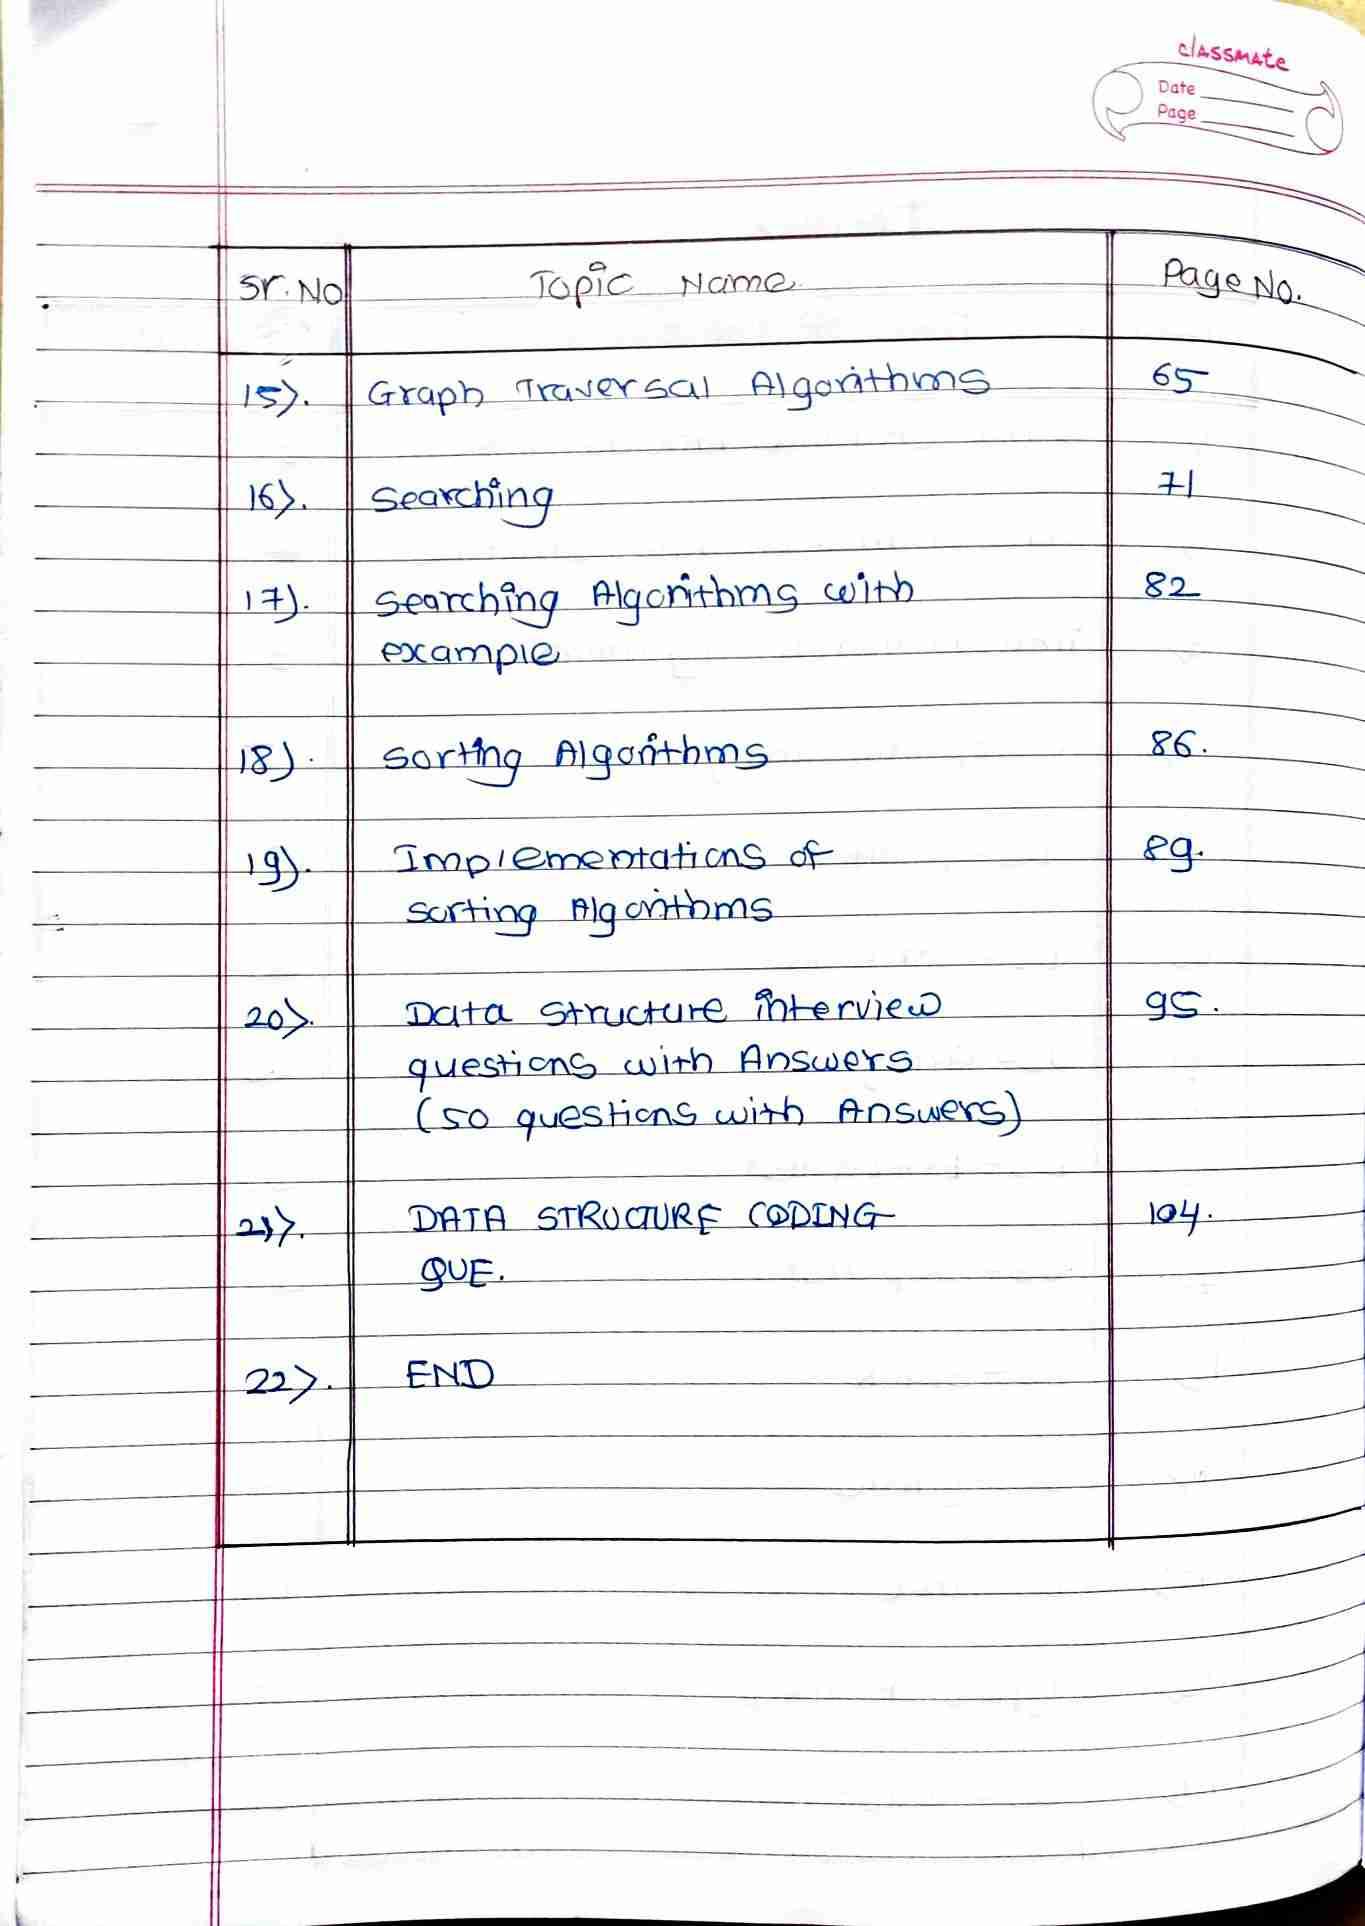 classmate
Date
Page
Sr. No Topic Name Page No.
15). Graph Traversal Algorithms 65
16). Searching 71
17). Searching Algorithms with 82
example
18). Sorting Algorithms 86.
19). Implementations of 89.
Sorting Algorithms
20). Data Structure interview 95.
questions with Answers
(50 questions with Answers)
21). DATA STRUCTURE CODING 104.
QUE.
22). END